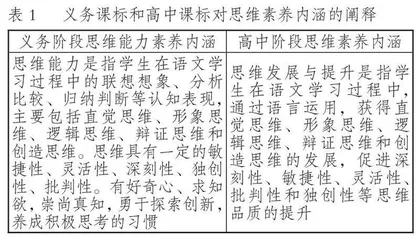 表 1 义务课标和高中课标对思维素养内涵的阐释
义务阶段思维能力素养内涵
思维能力是指学生在语文学
习过程中的联想想象、分析
比较、归纳判断等认知表现，
主要包括直觉思维、形象思
维、逻辑思维、辩证思维和
创造思维。思维具有一定的敏
捷性、灵活性、深刻性、独创
性、批判性。有好奇心、求知
欲，崇尚真知，勇于探索创新，
养成积极思考的习惯
高中阶段思维素养内涵
思维发展与提升是指学
生在语文学习过程中，
通过语言运用，获得直
觉思维、形象思维、逻
辑思维、辩证思维和创
造思维的发展，促进深
刻性、敏捷性、灵活性、
批判性和独创性等思维
品质的提升